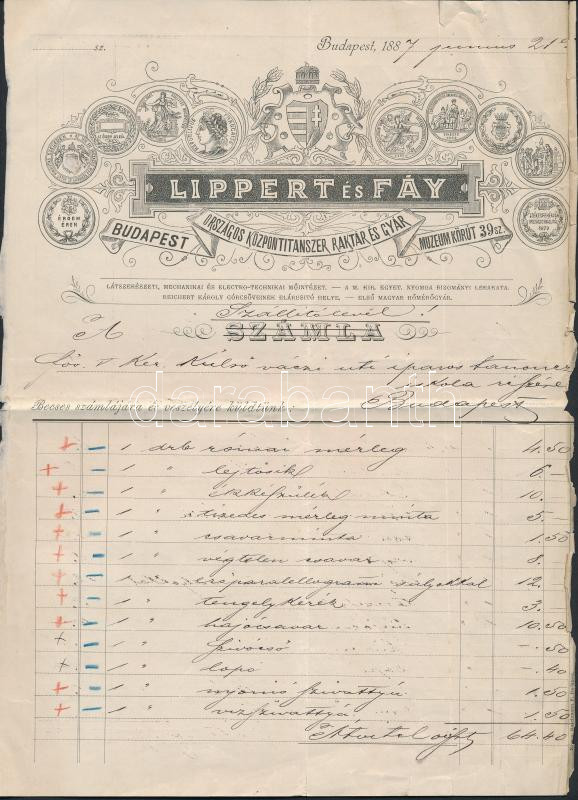 sz.
Budapest, 1887 junius 21
ÉRDEM ÉREM
LIPPERT ÉS FÁY
BUDAPEST
ORSZÁGOS KÖZPONTI TANSZER, RAKTÁR ÉS GYÁR
MUZEUM KÖRÚT 39 SZ.
1879
LÁTSZERÉSZETI, MECHANIKAI ÉS ELECTRO-TECHNIKAI MŰINTÉZET. — A M. KIR. EGYET. NYOMDA BIZOMÁNYI LERAKATA.
REICHERT KÁROLY GÓRCSÖVEINEK ELÁRUSITÓ HELYE. — ELSŐ MAGYAR HŐMÉRŐGYÁR.
Szallitólevél!
A SZÁMLA
Főv. Ker. Külső váczi uti iparos tanoncz
iskola részére
Becses számlájára és veszélyére küldtünk: Budapest
darabanth
1 drb római mérleg 4.50
1 " lejtősik 6.–
1 " ékkészülék 10.–
1 " tizedes mérleg minta 5.–
1 " csavarminta 1.50
1 " végtelen csavar 8.–
1 " paralellogram sulyokkal 12.–
1 " tengelykerék 3.–
1 " hajócsavar 10.50
1 " szivócső –.50
1 " lopó –.40
1 " nyomó szivattyú 1.50
1 " vizszivattyú 1.50
Átvitel 64.40